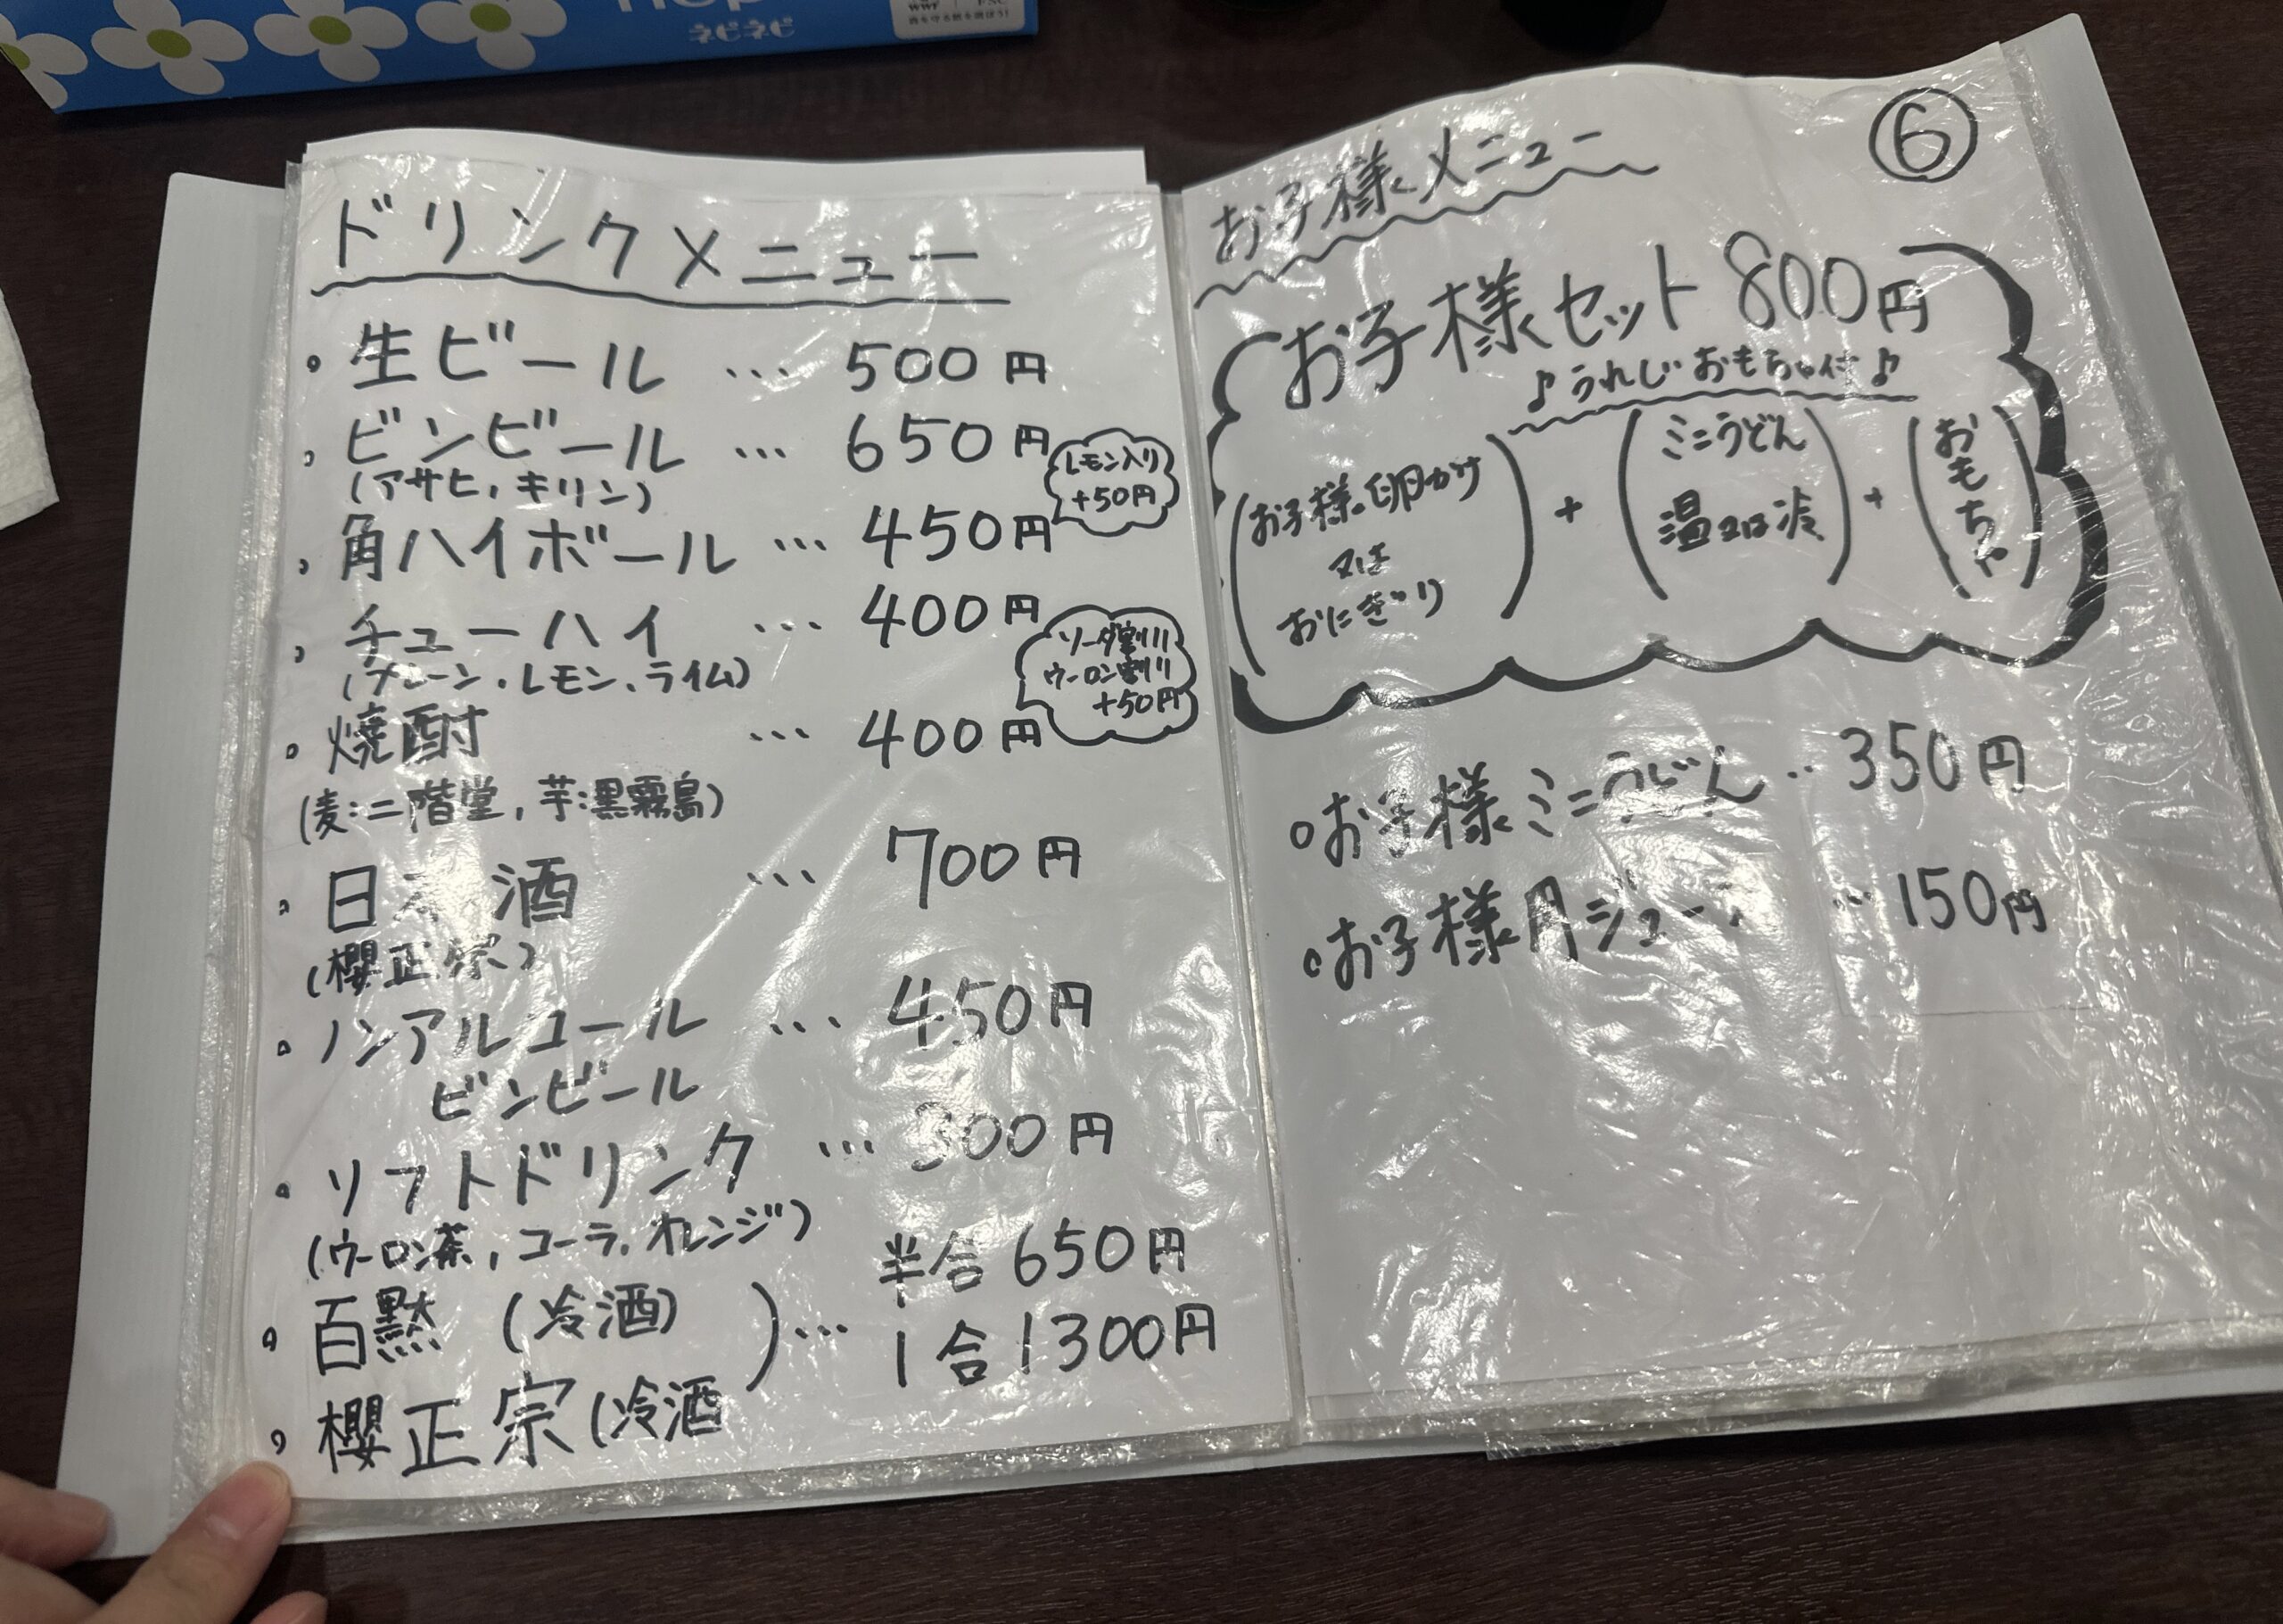 ネピネピ
WWF
FSC
ドリンクメニュー
。生ビール … 500円
、ビンビール … 650円
(アサヒ、キリン)
レモン入り
+50円
、角ハイボール … 450円
、チューハイ … 400円
(プレーン、レモン、ライム)
ソーダ割り
ウーロン割り
+50円
。焼酎 … 400円
(麦:二階堂、芋:黒霧島)
、日本酒 … 700円
(櫻正宗)
。ノンアルコール … 450円
ビンビール
。ソフトドリンク … 300円
(ウーロン茶、コーラ、オレンジ)
。百黙 (冷酒) )… 半合 650円
1合 1300円
、櫻正宗(冷酒
⑥
お子様メニュー
お子様セット 800円
♪うれしいおもちゃ付♪
(お子様卵かけ
又は
おにぎり)
+
(ミニうどん
温又は冷)
+
(おもちゃ)
○お子様ミニうどん … 350円
○お子様用ジュース … 150円